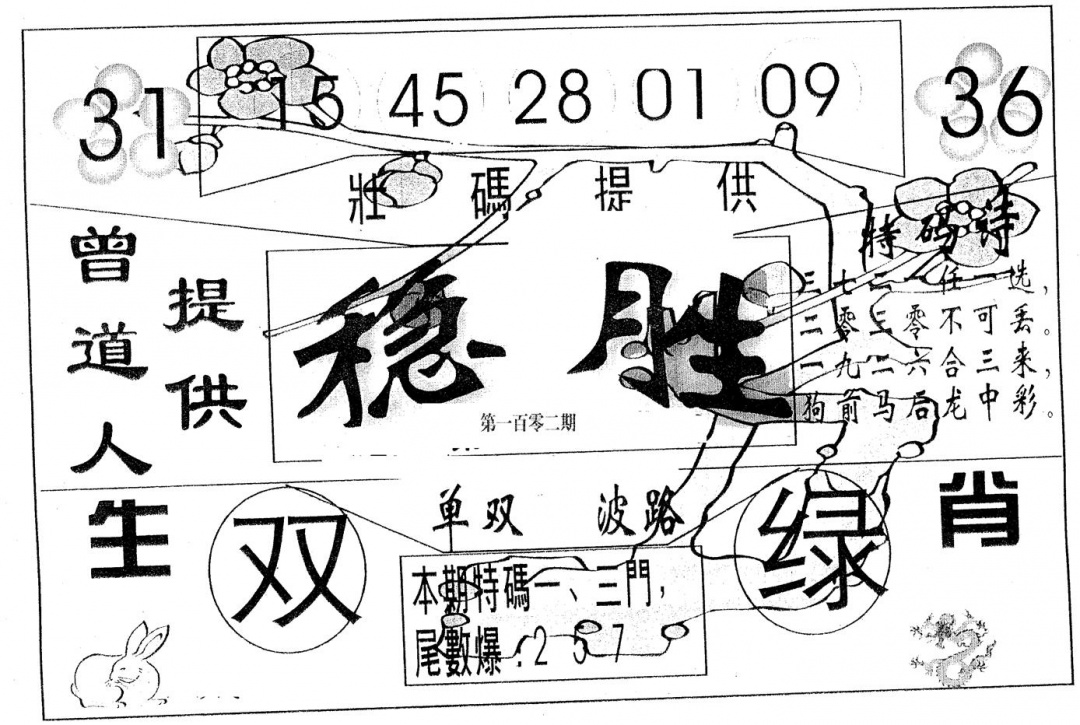 31 15 45 28 01 09 36
壯碼提供
曾道人
提供
特码诗
三七二一任一选，
二零三零不可丢。
一九二六合三来，
狗前马后龙中彩。
稳胜
第一百零二期
生
肖
单双 波路
双
绿
本期特碼一、三門，
尾數爆：2 5 7